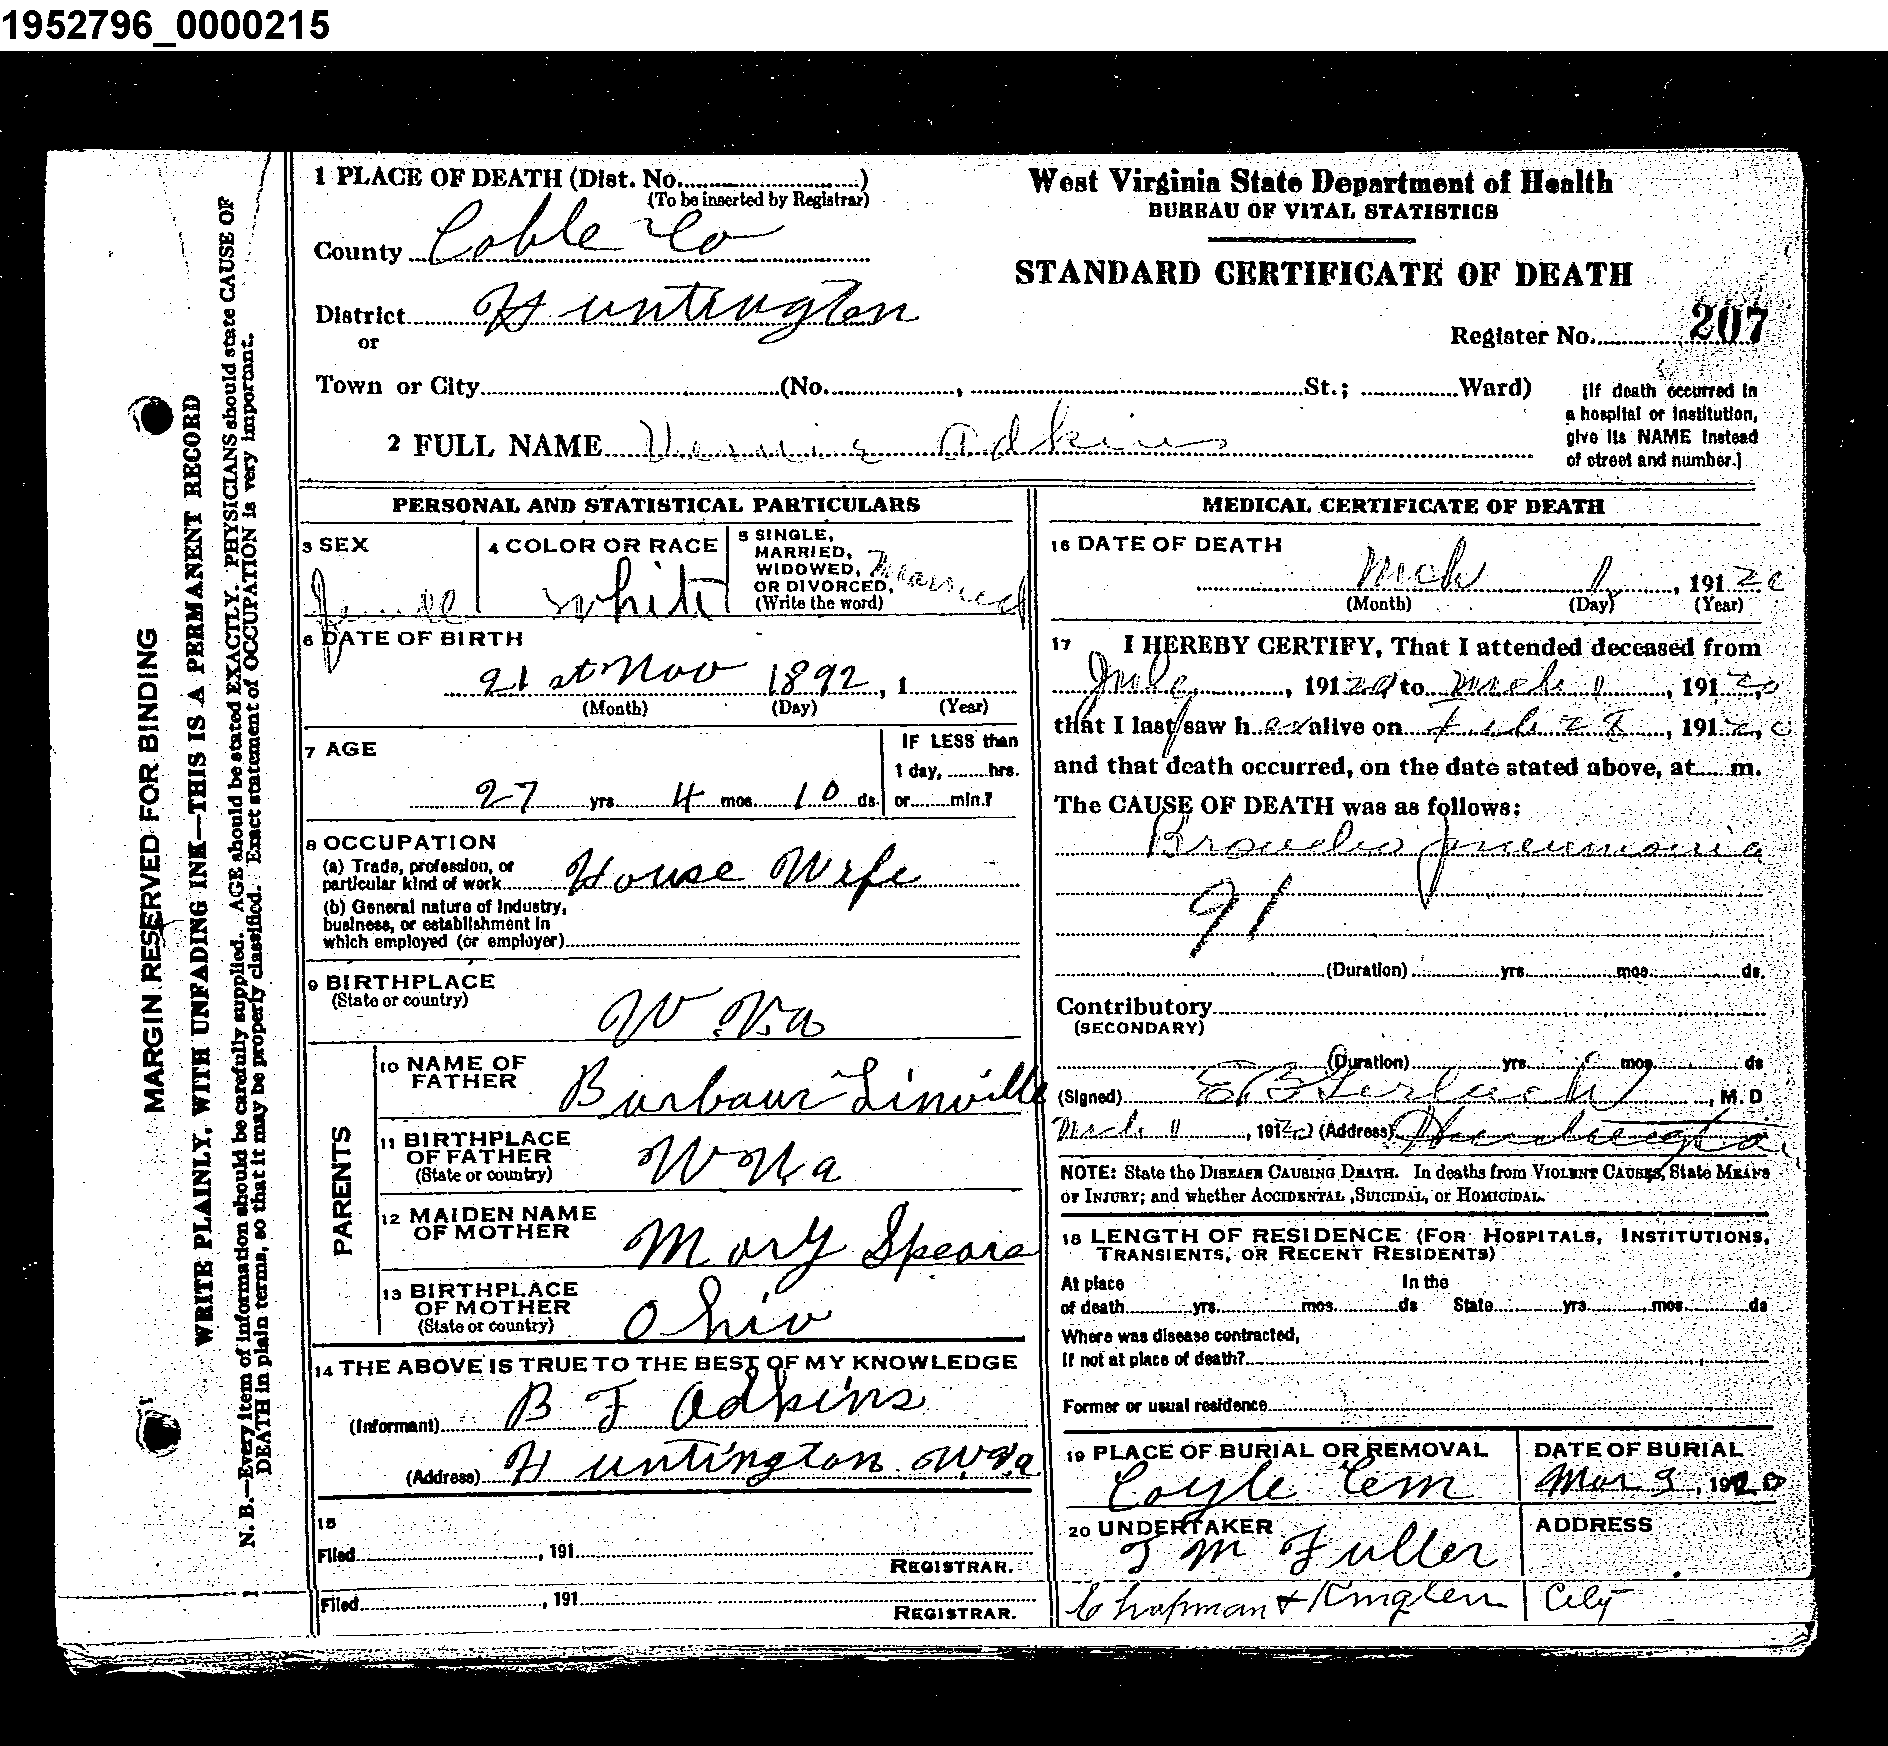 1952796_0000215
MARGIN RESERVED FOR BINDING
WRITE PLAINLY, WITH UNFADING INK—THIS IS A PERMANENT RECORD
N. B.—Every item of information should be carefully supplied. AGE should be stated EXACTLY. PHYSICIANS should state CAUSE OF
DEATH in plain terms, so that it may be properly classified. Exact statement of OCCUPATION is very important.
1 PLACE OF DEATH (Dist. No. )
(To be inserted by Registrar)
County Coble Co
District Huntington
or
Town or City (No. , St.; Ward)
West Virginia State Department of Health
BUREAU OF VITAL STATISTICS
STANDARD CERTIFICATE OF DEATH
Register No. 207
[If death occurred in
a hospital or institution,
give its NAME instead
of street and number.]
2 FULL NAME Vernie Adkins
PERSONAL AND STATISTICAL PARTICULARS
3 SEX
4 COLOR OR RACE
White
5 SINGLE,
MARRIED,
WIDOWED,
OR DIVORCED,
(Write the word)
Married
6 DATE OF BIRTH
21st Nov 1892, 1
(Month) (Day) (Year)
7 AGE
27 yrs. 4 mos. 10 ds.
IF LESS than
1 day, hrs.
or min.?
8 OCCUPATION
(a) Trade, profession, or
particular kind of work House Wife
(b) General nature of Industry,
business, or establishment in
which employed (or employer)
9 BIRTHPLACE
(State or country)
W. Va
PARENTS
10 NAME OF
FATHER
Burbaur Linville
11 BIRTHPLACE
OF FATHER
(State or country)
W Va
12 MAIDEN NAME
OF MOTHER
Mary Spears
13 BIRTHPLACE
OF MOTHER
(State or country)
Ohio
14 THE ABOVE IS TRUE TO THE BEST OF MY KNOWLEDGE
(Informant) B F Adkins
(Address) Huntington W.Va
15
Filed , 191
REGISTRAR.
Filed , 191
REGISTRAR.
MEDICAL CERTIFICATE OF DEATH
16 DATE OF DEATH
Mch 1, 191 20
(Month) (Day) (Year)
17 I HEREBY CERTIFY, That I attended deceased from
, 191 20 to Mch 1, 191 20,
that I last saw her alive on Feb 28, 191 20,
and that death occurred, on the date stated above, at m.
The CAUSE OF DEATH was as follows:
Broncho pneumonia
91
(Duration) yrs. mos. ds.
Contributory
(SECONDARY)
(Duration) yrs. mos. ds
(Signed) E B Gerlach, M. D
Mch 1, 191 20 (Address) Huntington
NOTE: State the DISEASE CAUSING DEATH. In deaths from VIOLENT CAUSES, State MEANS
OF INJURY; and whether ACCIDENTAL, SUICIDAL, or HOMICIDAL.
18 LENGTH OF RESIDENCE (FOR HOSPITALS, INSTITUTIONS,
TRANSIENTS, OR RECENT RESIDENTS)
At place In the
of death yrs. mos. ds State yrs. mos. ds
Where was disease contracted,
If not at place of death?
Former or usual residence
19 PLACE OF BURIAL OR REMOVAL
Coyle Cem
DATE OF BURIAL
Mar 3, 1920
20 UNDERTAKER
T M Fuller
Chapman &
ADDRESS
City